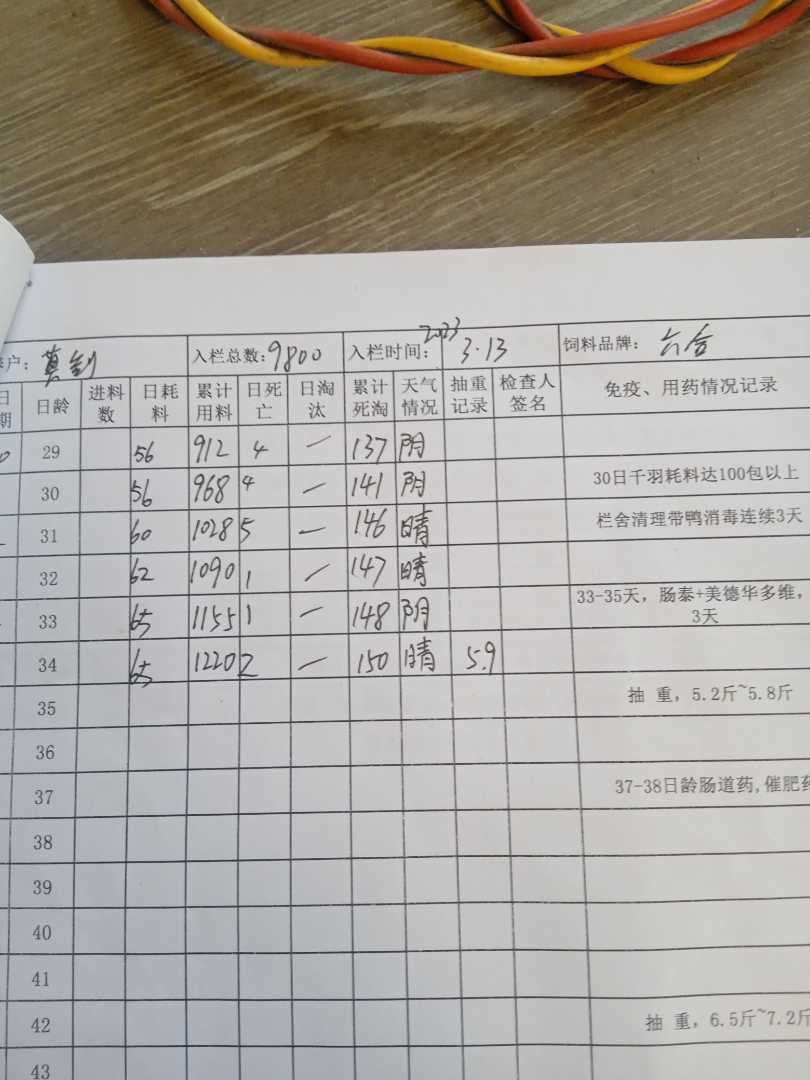 户： 入栏总数：9800 入栏时间：2023 3.13 饲料品牌：六合
日期 日龄 进料数 日耗料 累计用料 日死亡 日淘汰 累计死淘 天气情况 抽重记录 检查人签名 免疫、用药情况记录
29 56 912 4 — 137 阴
30 56 968 4 — 141 阴 30日千羽耗料达100包以上
31 60 1028 5 — 146 晴 栏舍清理带鸭消毒连续3天
32 62 1090 1 — 147 晴
33 65 1155 1 — 148 阴 33-35天，肠泰+美德华多维，3天
34 65 1220 2 — 150 晴 5.9
35 抽 重，5.2斤~5.8斤
36
37 37-38日龄肠道药,催肥药
38
39
40
41
42 抽 重，6.5斤~7.2斤
43